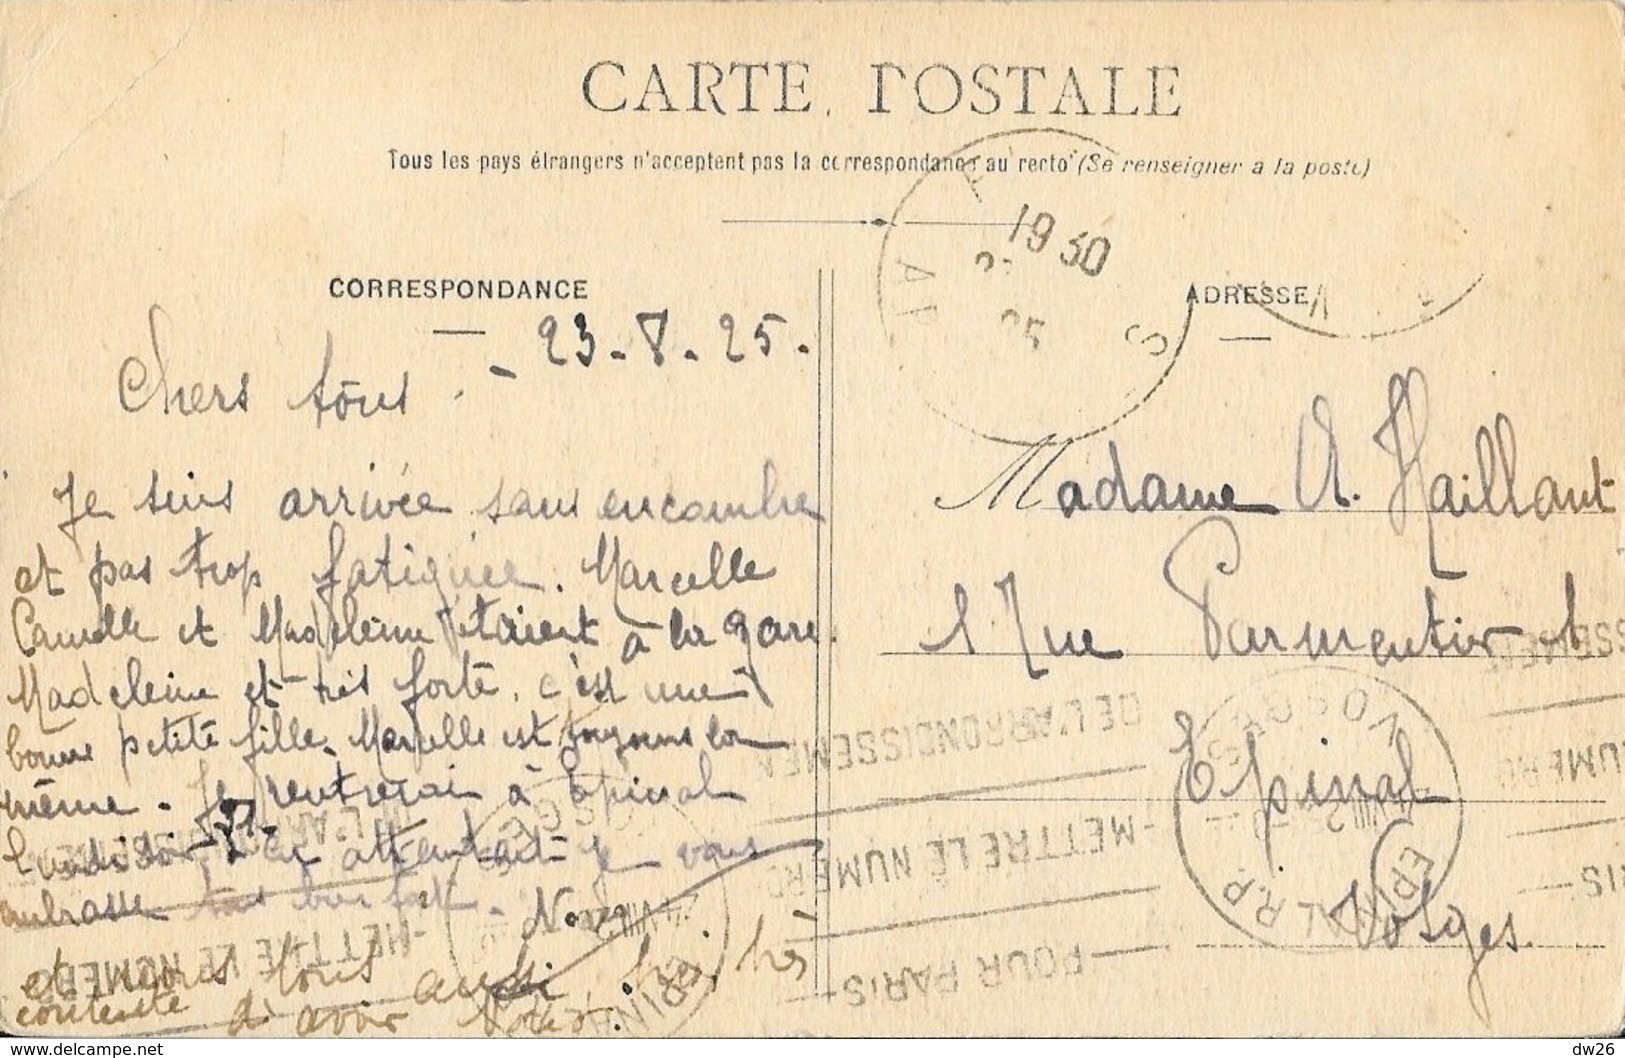 CARTE POSTALE
Tous les pays étrangers n'acceptent pas la correspondance au recto (Se renseigner a la poste)
CORRESPONDANCE
ADRESSE
23-8-25.
Chers tous.
Je suis arrivée sans encombre
et pas trop fatiguée. Marcelle
Camille et Madeleine étaient à la gare.
Madeleine est très forte, c'est une
bonne petite fille. Marcelle est toujours la
même. Je rentrerai à Epinal
lundi soir. En attendant je vous
embrasse tous bien fort.
et nous tous aussi
contente d'avoir
Madame A. Haillant
1 Rue Parmentier 1
Epinal
Vosges
19 30
25
DE L'ARRONDISSEMENT
METTRE LE NUMERO
POUR PARIS
EPINAL R.P.
VOSGES
METTRE LE NUMERO
EPINAL
dw26
© www.delcampe.net